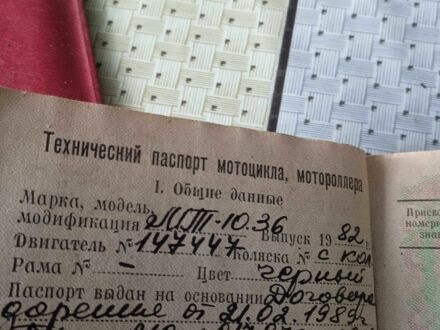 Технический паспорт мотоцикла, мотороллера
I. Общие данные
Марка, модель,
модификация МТ-10.36 Выпуск 1982 г.
Двигатель № 147447 Коляска № с кол
Рама № – Цвет черный
Паспорт выдан на основании Договора
дарение от 21.02.1989г